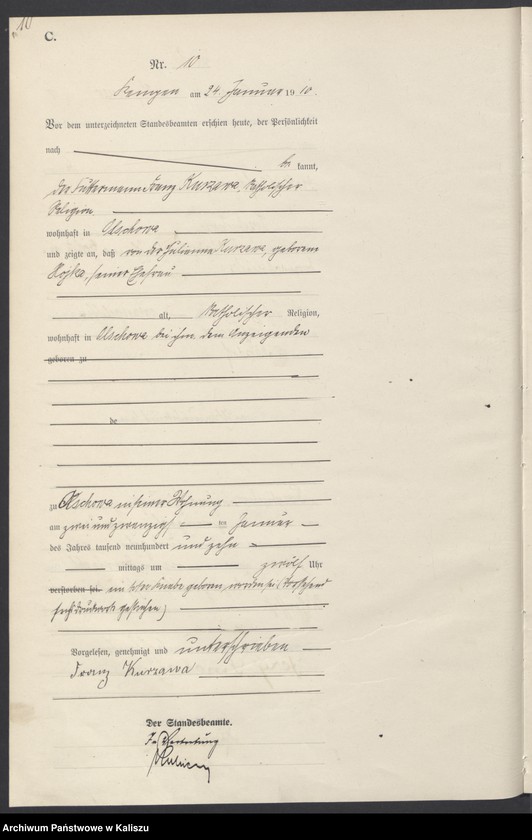 10
C.
Nr. 10
Kempen am 24 Januar 1910.
Vor dem unterzeichneten Standesbeamten erschien heute, der Persönlichkeit
nach be kannt,
der Franz Kurzawa, katholischer
Religion
wohnhaft in Olschowa
und zeigte an, daß von der Julianna Kurzawa, geborene
seiner Ehefrau
alt, katholischer Religion,
wohnhaft in Olschowa bei ihm dem Anzeigenden
geboren zu
de
zu Olschowa in seiner Wohnung
am zwei und zwanzigsten Januar
des Jahres tausend neunhundert und zehn
mittags um zwölf Uhr
verstorben sei. ein Knabe geboren worden sei (Vorstehend
gestrichen)
Vorgelesen, genehmigt und unterschrieben
Franz Kurzawa
Der Standesbeamte.
In Vertretung
Archiwum Państwowe w Kaliszu